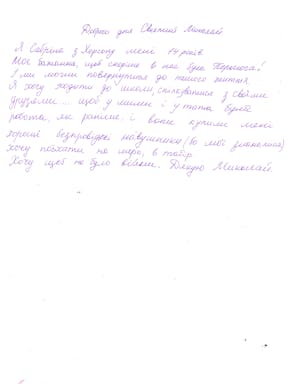 Доброго дня Святий Миколай
Я Сабріна з Херсону мені 14 років
Моє бажання, щоб скоріше в нас була Перемога!
І ми могли повернутися до нашого життя
Я хочу ходити до школи, спілкуватися з своїми
друзями... щоб у мами і у тата була
робота, як раніше. і вони купили мені
хороші безпровідні навушники (бо мої зламалися)
хочу поїхати на море, в табір
Хочу щоб не було війни. Дякую Миколай.